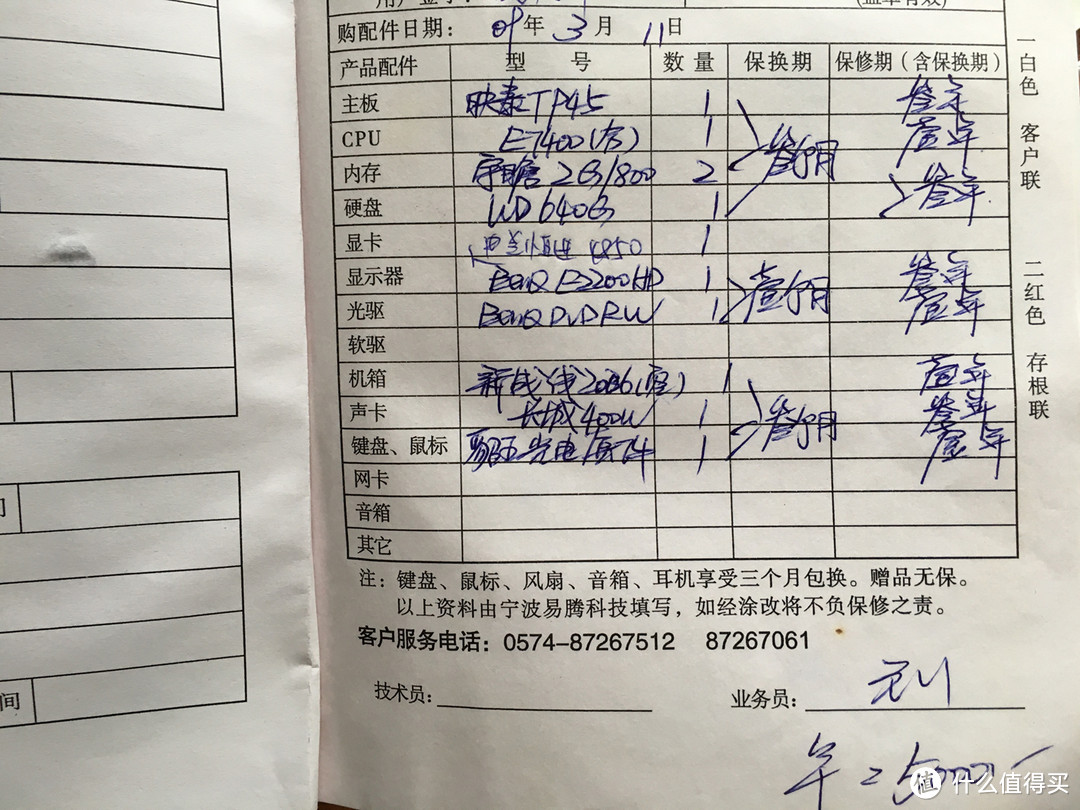 购配件日期: 09 年 3 月 11 日
产品配件 型 号 数 量 保换期 保修期(含保换期)
主板 映泰TP45 1 叁年
CPU E7400(盒) 1 壹年
内存 宇瞻 2G/800 2 叁个月
硬盘 WD 640G 1 叁年
显卡 4850 1
显示器 BenQ E2200HD 1 叁年
光驱 BenQ DVDRW 1 壹个月 壹年
软驱
机箱 新战线2036 1 壹年
声卡 长城400W 1 叁个月 叁年
键盘、鼠标 光电套件 1 壹年
网卡
音箱
其它
注: 键盘、鼠标、风扇、音箱、耳机享受三个月包换。赠品无保。
以上资料由宁波易腾科技填写,如经涂改将不负保修之责。
客户服务电话: 0574-87267512 87267061
技术员: 业务员:
一白色 客户联
二红色 存根联
间
值 什么值得买